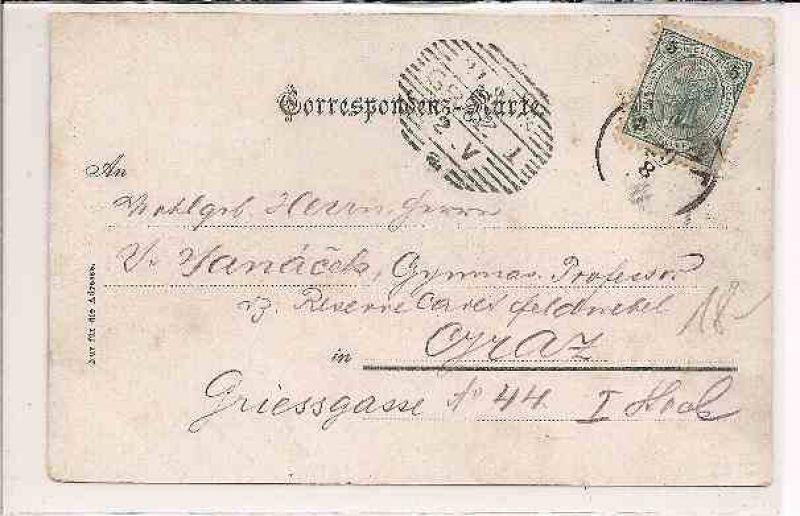 Correspondenz-Karte.
An
Wohlgeb Herrn Herrn
V. Janáček, Gymnas. Professor
Reserve Cadet feldwebel
18
in Graz
Griessgasse No 44 I Stock
Nur für die Adresse.
5 5